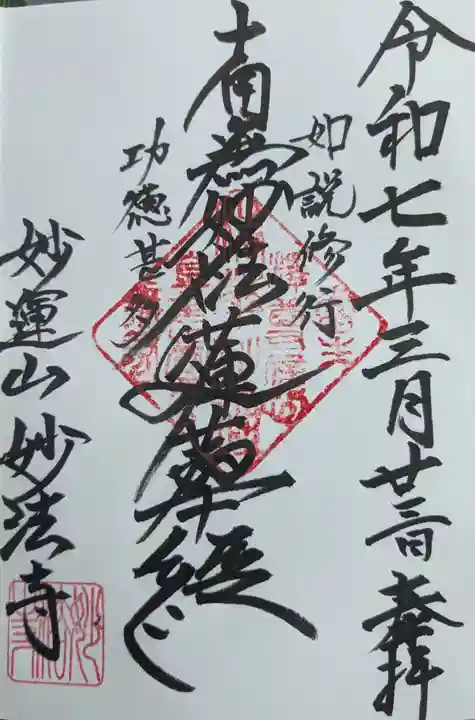 令和七年三月廿三日奉拝
如説修行
南無妙法蓮華経
功徳甚多
妙運山妙法寺